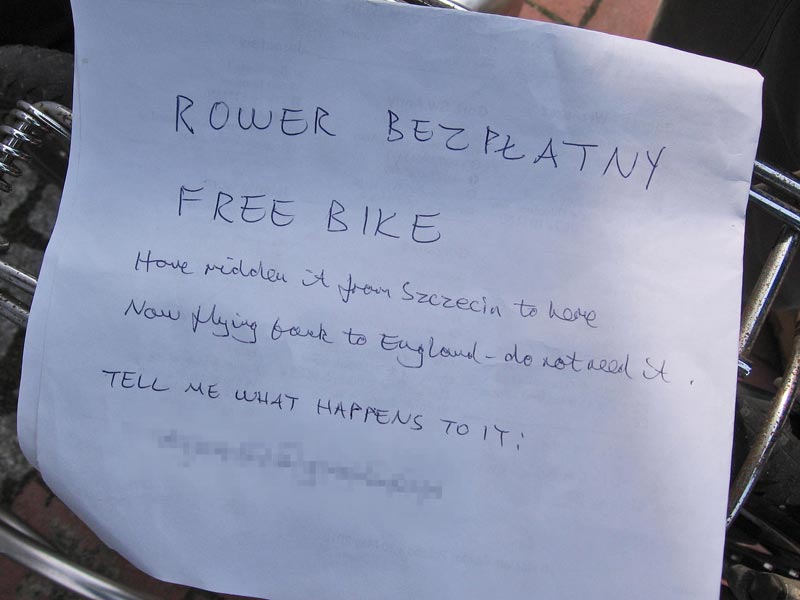 ROWER BEZPŁATNY
FREE BIKE
Have ridden it from Szczecin to here
Now flying back to England - do not need it.
TELL ME WHAT HAPPENS TO IT: